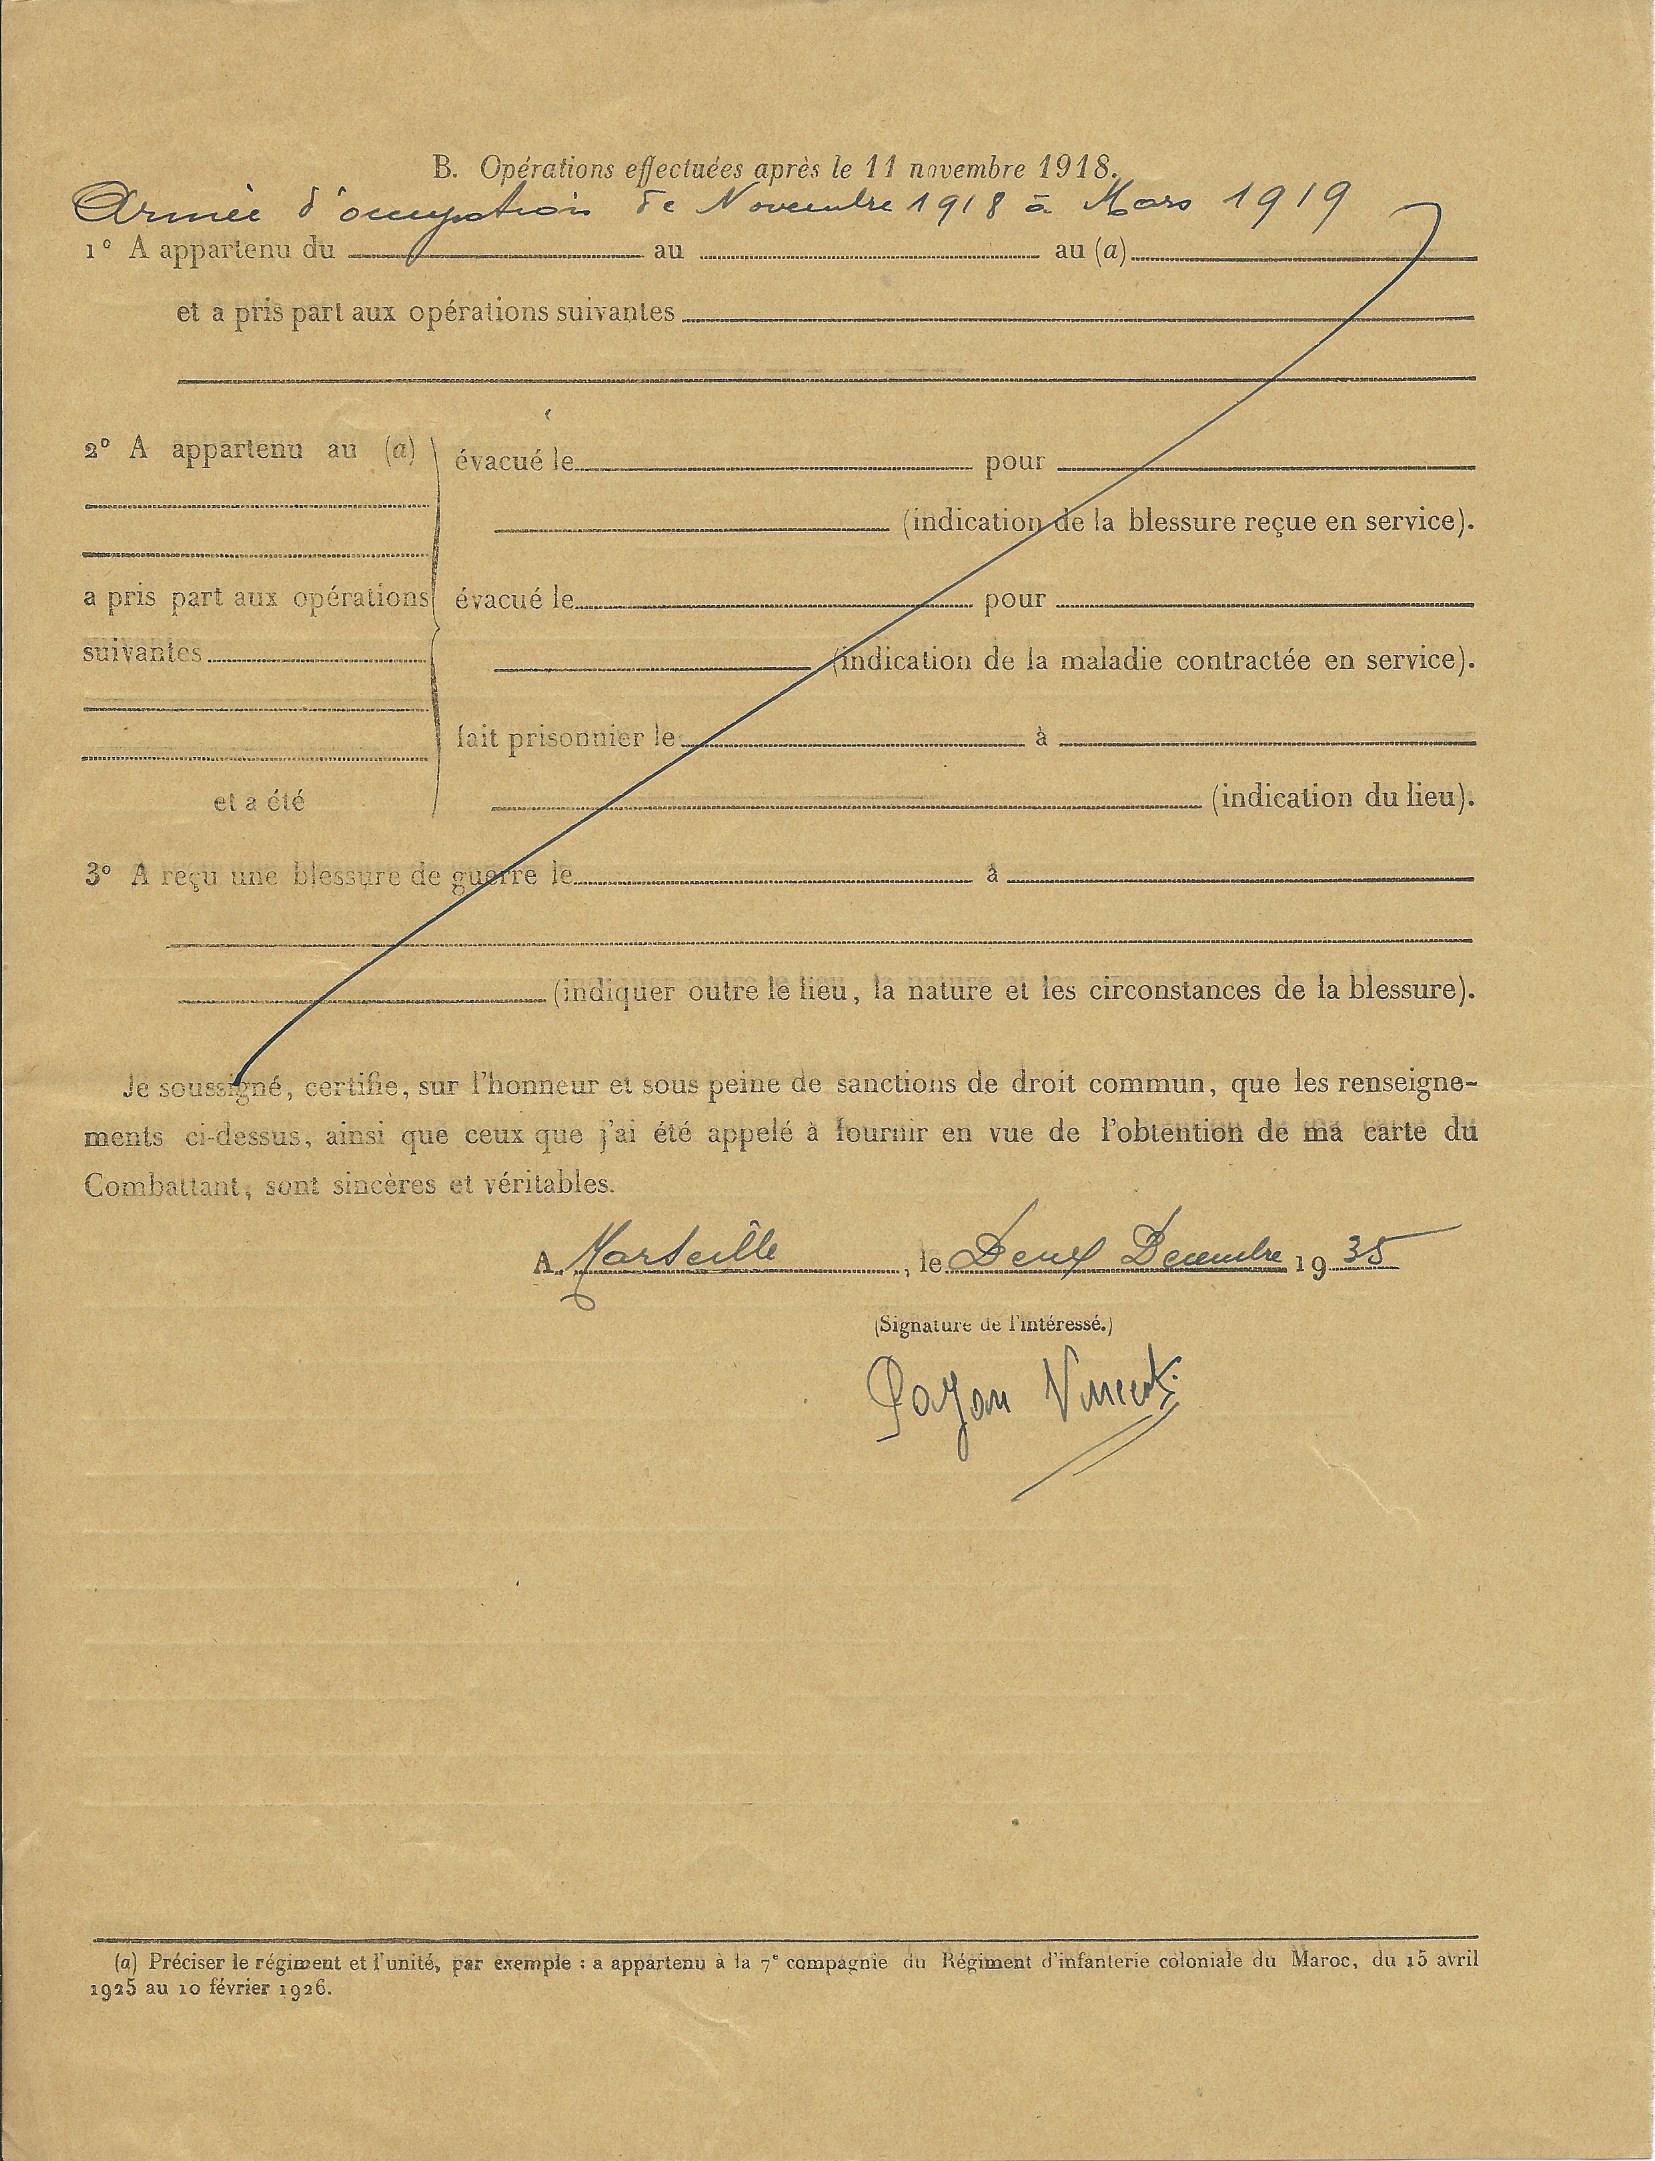 B. Opérations effectuées après le 11 novembre 1918.
Armée d'occupation de Novembre 1918 à Mars 1919
1° A appartenu du au au (a)
et a pris part aux opérations suivantes
2° A appartenu au (a)
évacué le pour
(indication de la blessure reçue en service).
a pris part aux opérations
évacué le pour
suivantes
(indication de la maladie contractée en service).
fait prisonnier le à
et a été
(indication du lieu).
3° A reçu une blessure de guerre le à
(indiquer outre le lieu, la nature et les circonstances de la blessure).
Je soussigné, certifie, sur l'honneur et sous peine de sanctions de droit commun, que les renseigne-
ments ci-dessus, ainsi que ceux que j'ai été appelé à fournir en vue de l'obtention de ma carte du
Combattant, sont sincères et véritables.
A Marseille, le Deux Decembre 1935
(Signature de l'intéressé.)
Payan Vincent
(a) Préciser le régiment et l'unité, par exemple : a appartenu à la 7e compagnie du Régiment d'infanterie coloniale du Maroc, du 15 avril
1925 au 10 février 1926.